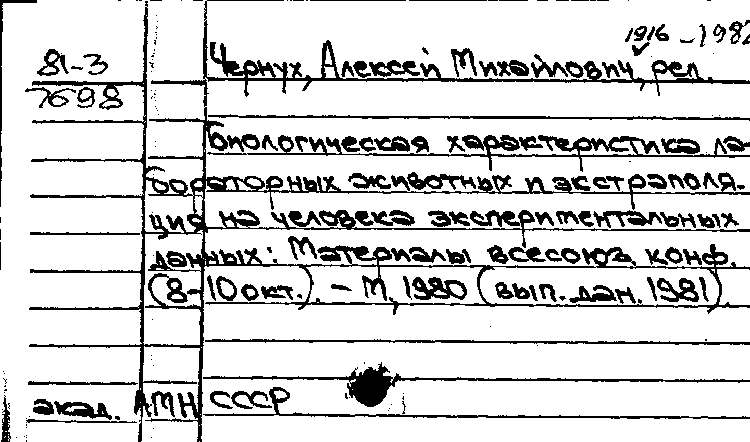 1916 – 1982
81-3
Чернух, Алексей Михайлович, ред.
7698
Биологическая характеристика ла-
бораторных животных и экстраполя-
ция на человека экспериментальных
данных: Материалы всесоюз. конф.
(8-10 окт.). – М., 1980 (вып. дан. 1981)
акад. АМН СССР